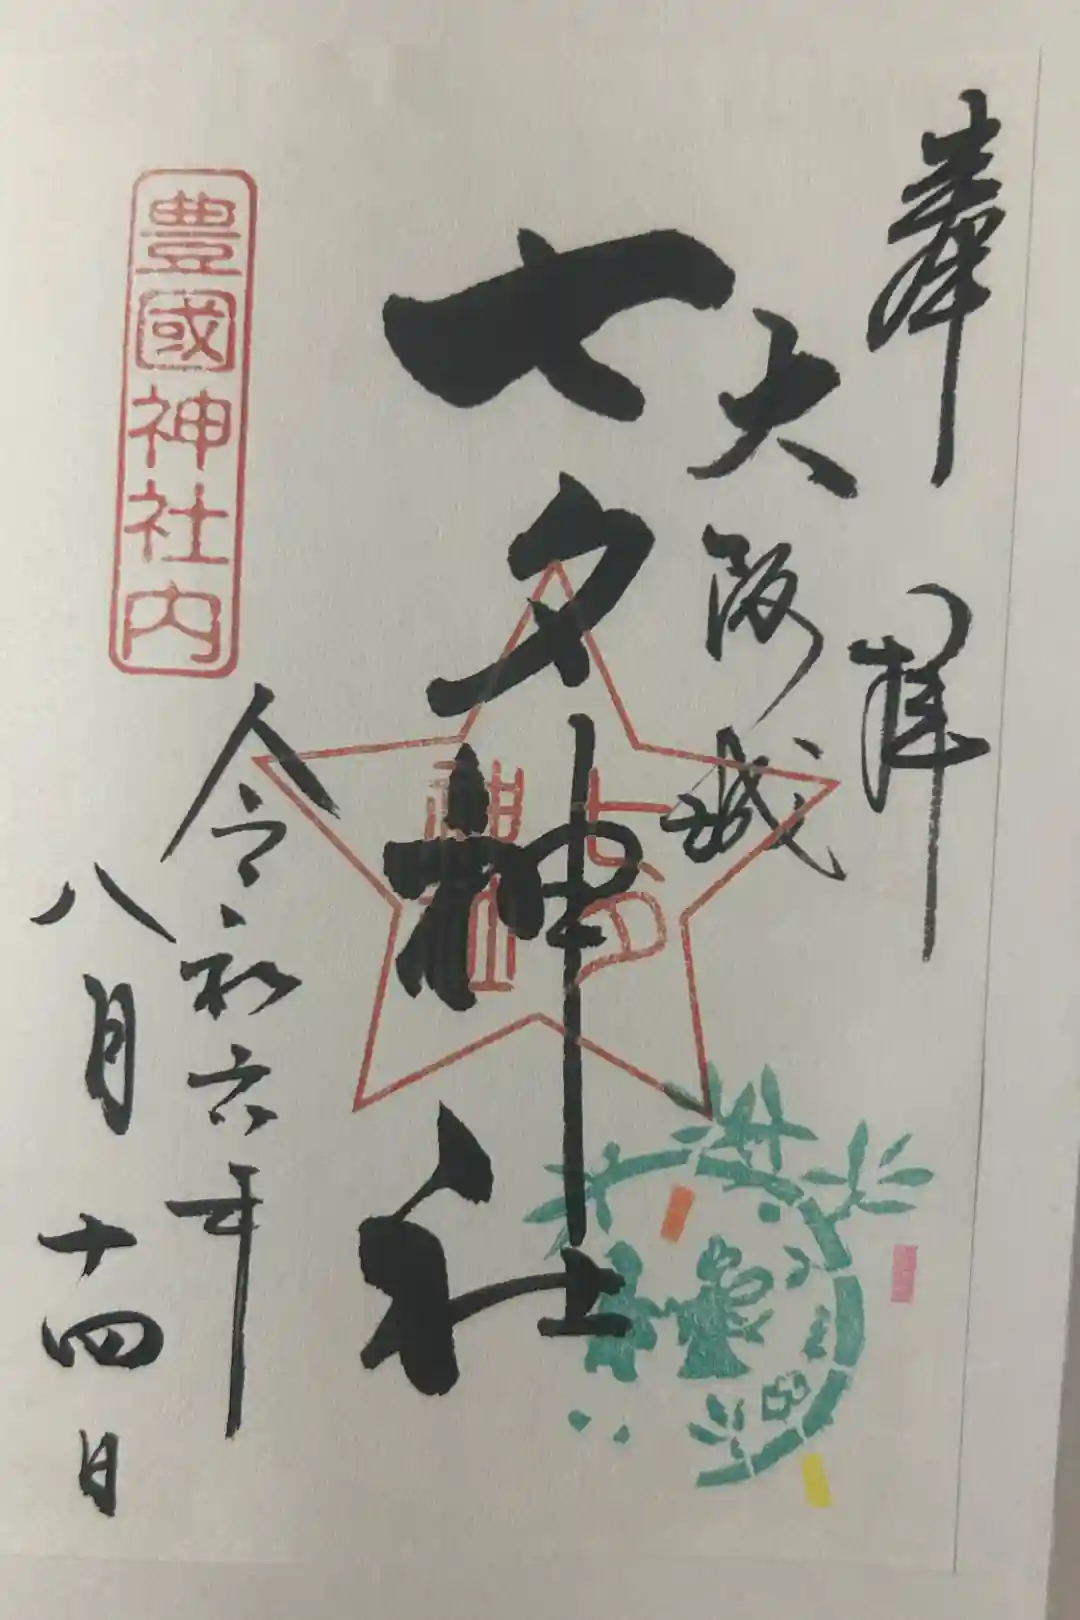 奉拝
大阪城
七夕神社
七夕
神社
豊國神社内
令和六年
八月十四日